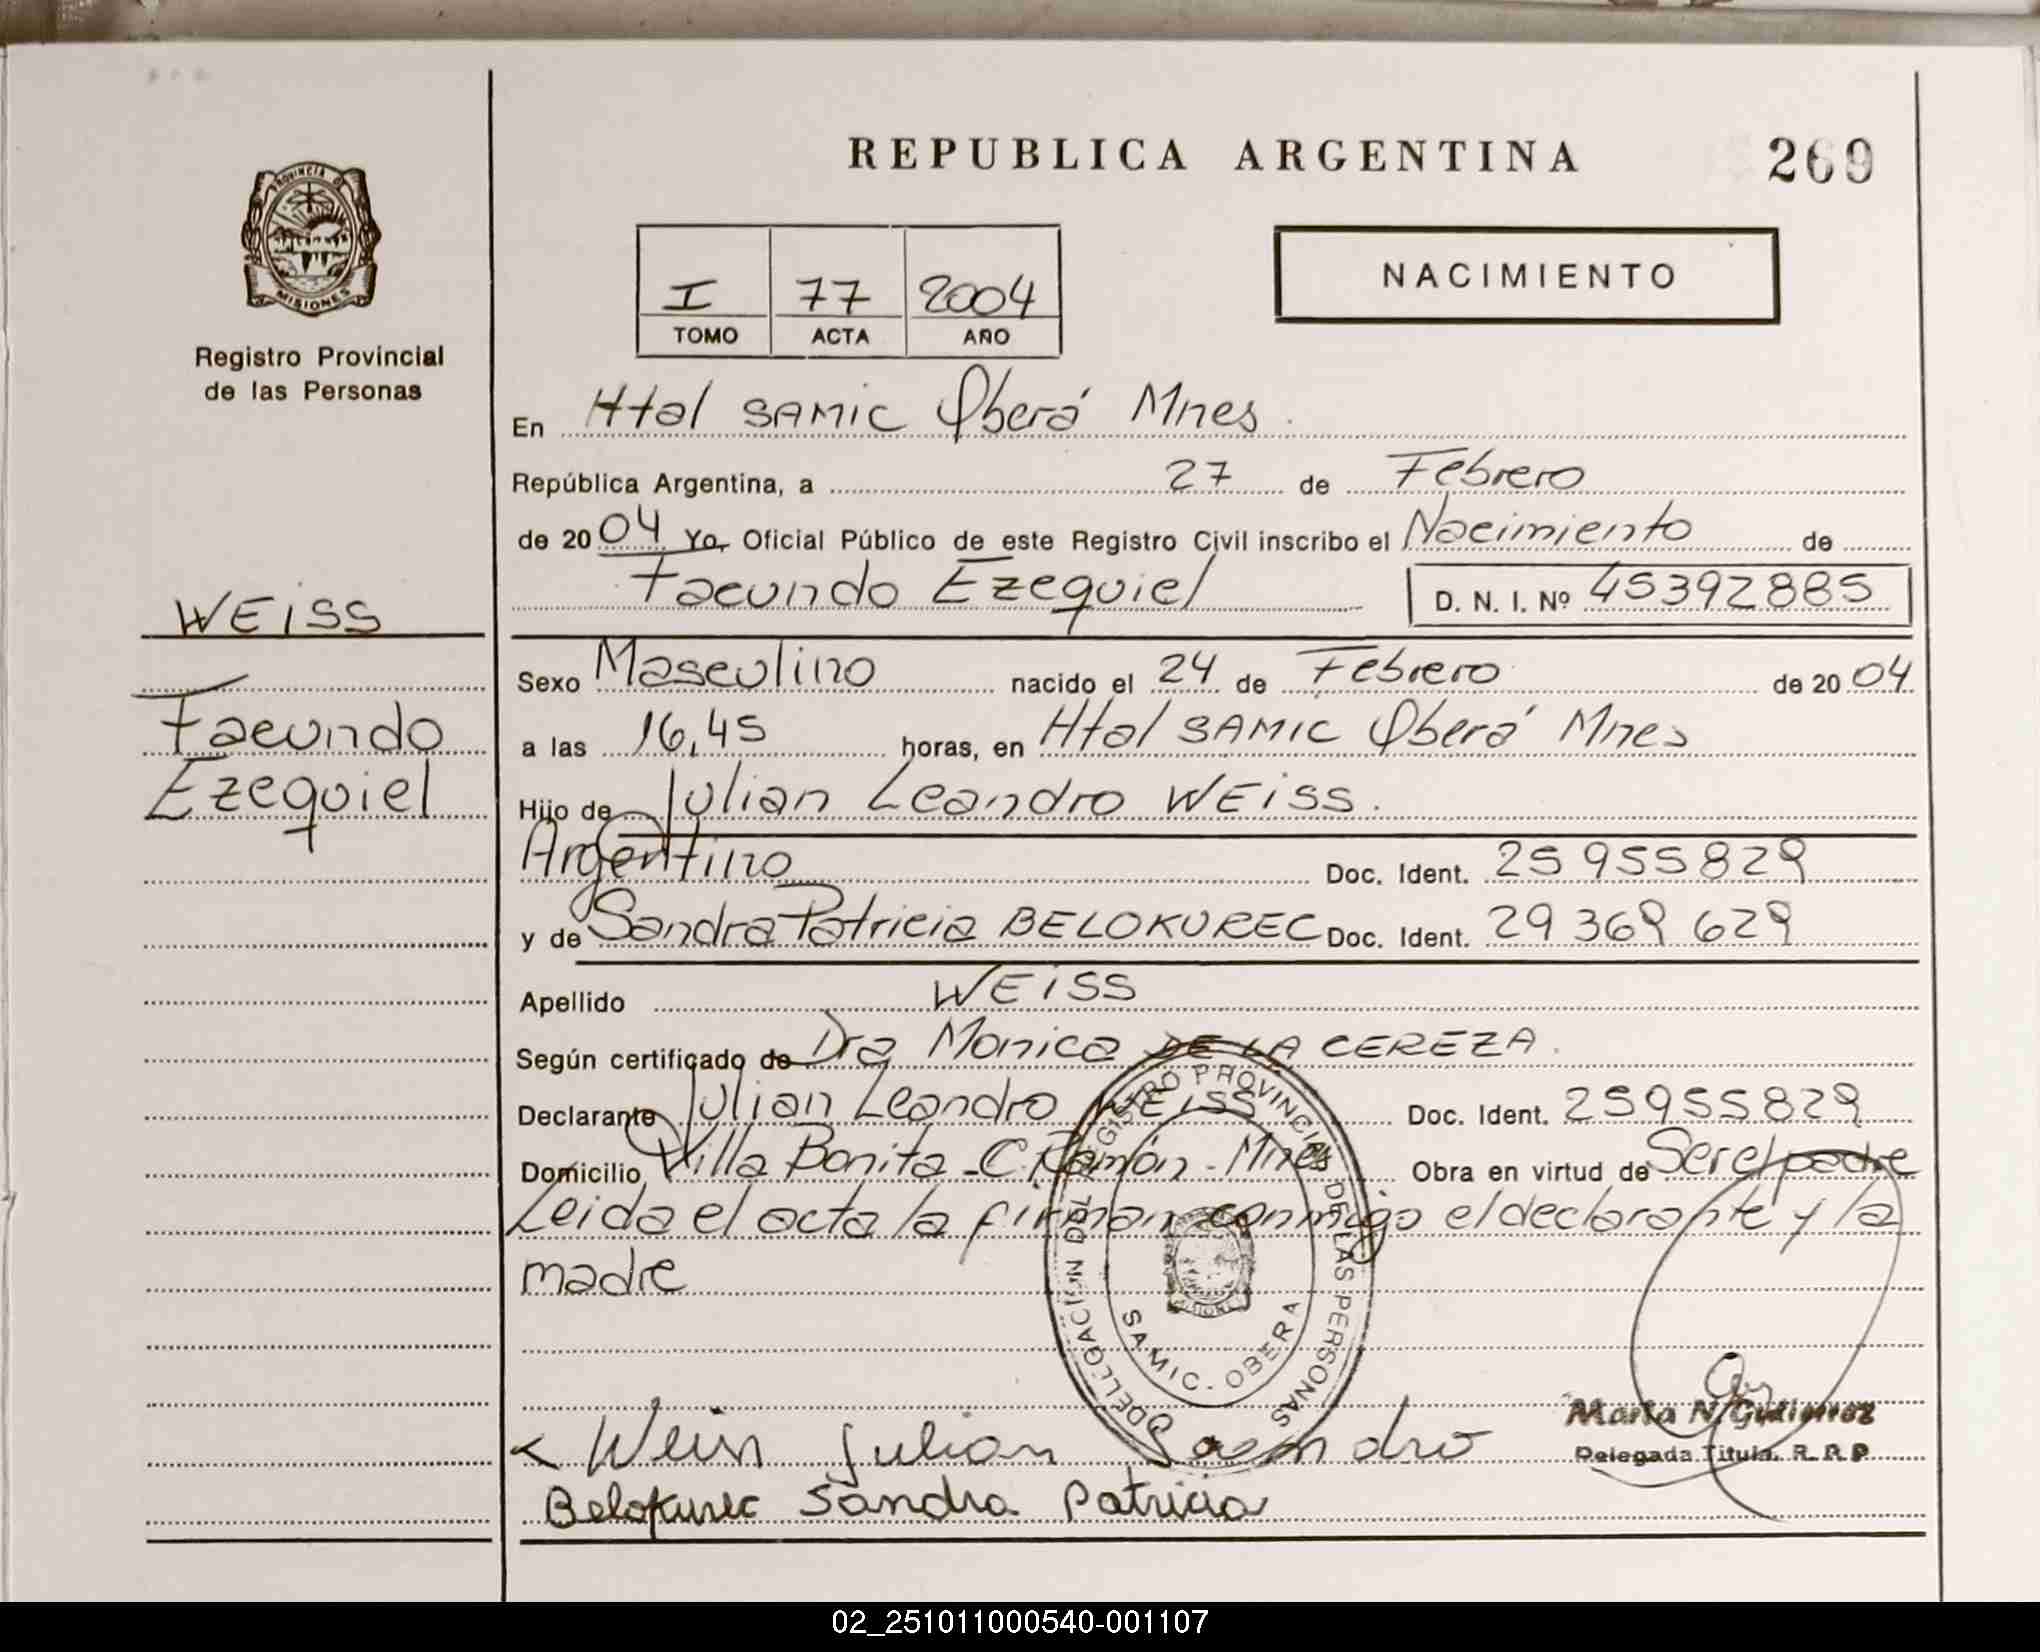 REPUBLICA ARGENTINA 269
PROVINCIA DE
MISIONES
Registro Provincial
de las Personas
I 77 2004
TOMO ACTA AÑO
NACIMIENTO
En Htal SAMIC Oberá Mnes.
República Argentina, a 27 de Febrero
de 2004 Yo, Oficial Público de este Registro Civil inscribo el Nacimiento de
Facundo Ezequiel D. N. I. Nº 45392885
WEISS
Facundo
Ezequiel
Sexo Masculino nacido el 24 de Febrero de 2004
a las 16,45 horas, en Htal SAMIC Oberá Mnes
Hijo de Julian Leandro WEISS.
Argentino Doc. Ident. 25 955829
y de Sandra Patricia BELOKUREC Doc. Ident. 29 369 629
Apellido WEISS
Según certificado de Dra Monica DE LA CEREZA.
Declarante Julian Leandro WEISS Doc. Ident. 25955829
Domicilio Villa Bonita - C. Ramón - Mnes Obra en virtud de Ser el padre
Leida el acta la firman conmigo el declarante y la
madre
REGISTRO PROVINCIAL DE LAS PERSONAS
SAMIC - OBERA
Weiss Julian Leandro
Marta N. Gutierrez
Delegada Titular R. P. P.
Belokurec Sandra Patricia
02_251011000540-001107